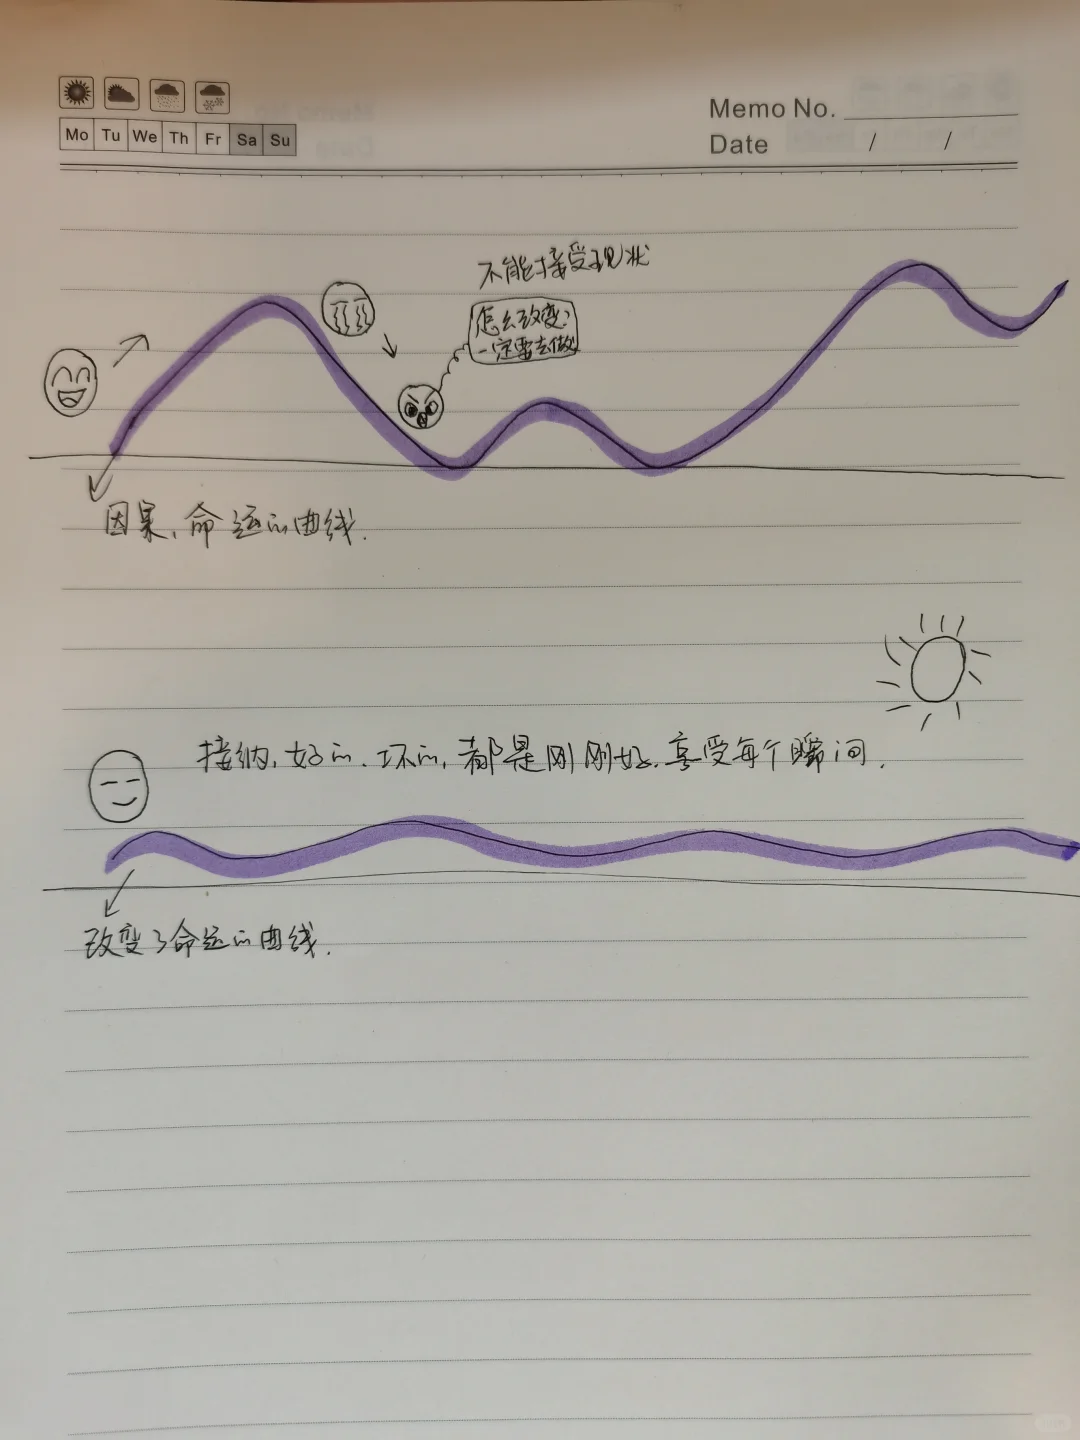 Mo Tu We Th Fr Sa Su
Memo No.
Date / /
不能接受现状
怎么改变?
一定要去做
因果、命运的曲线.
接纳,好的、坏的,都是刚刚好.享受每个瞬间.
改变了命运的曲线.